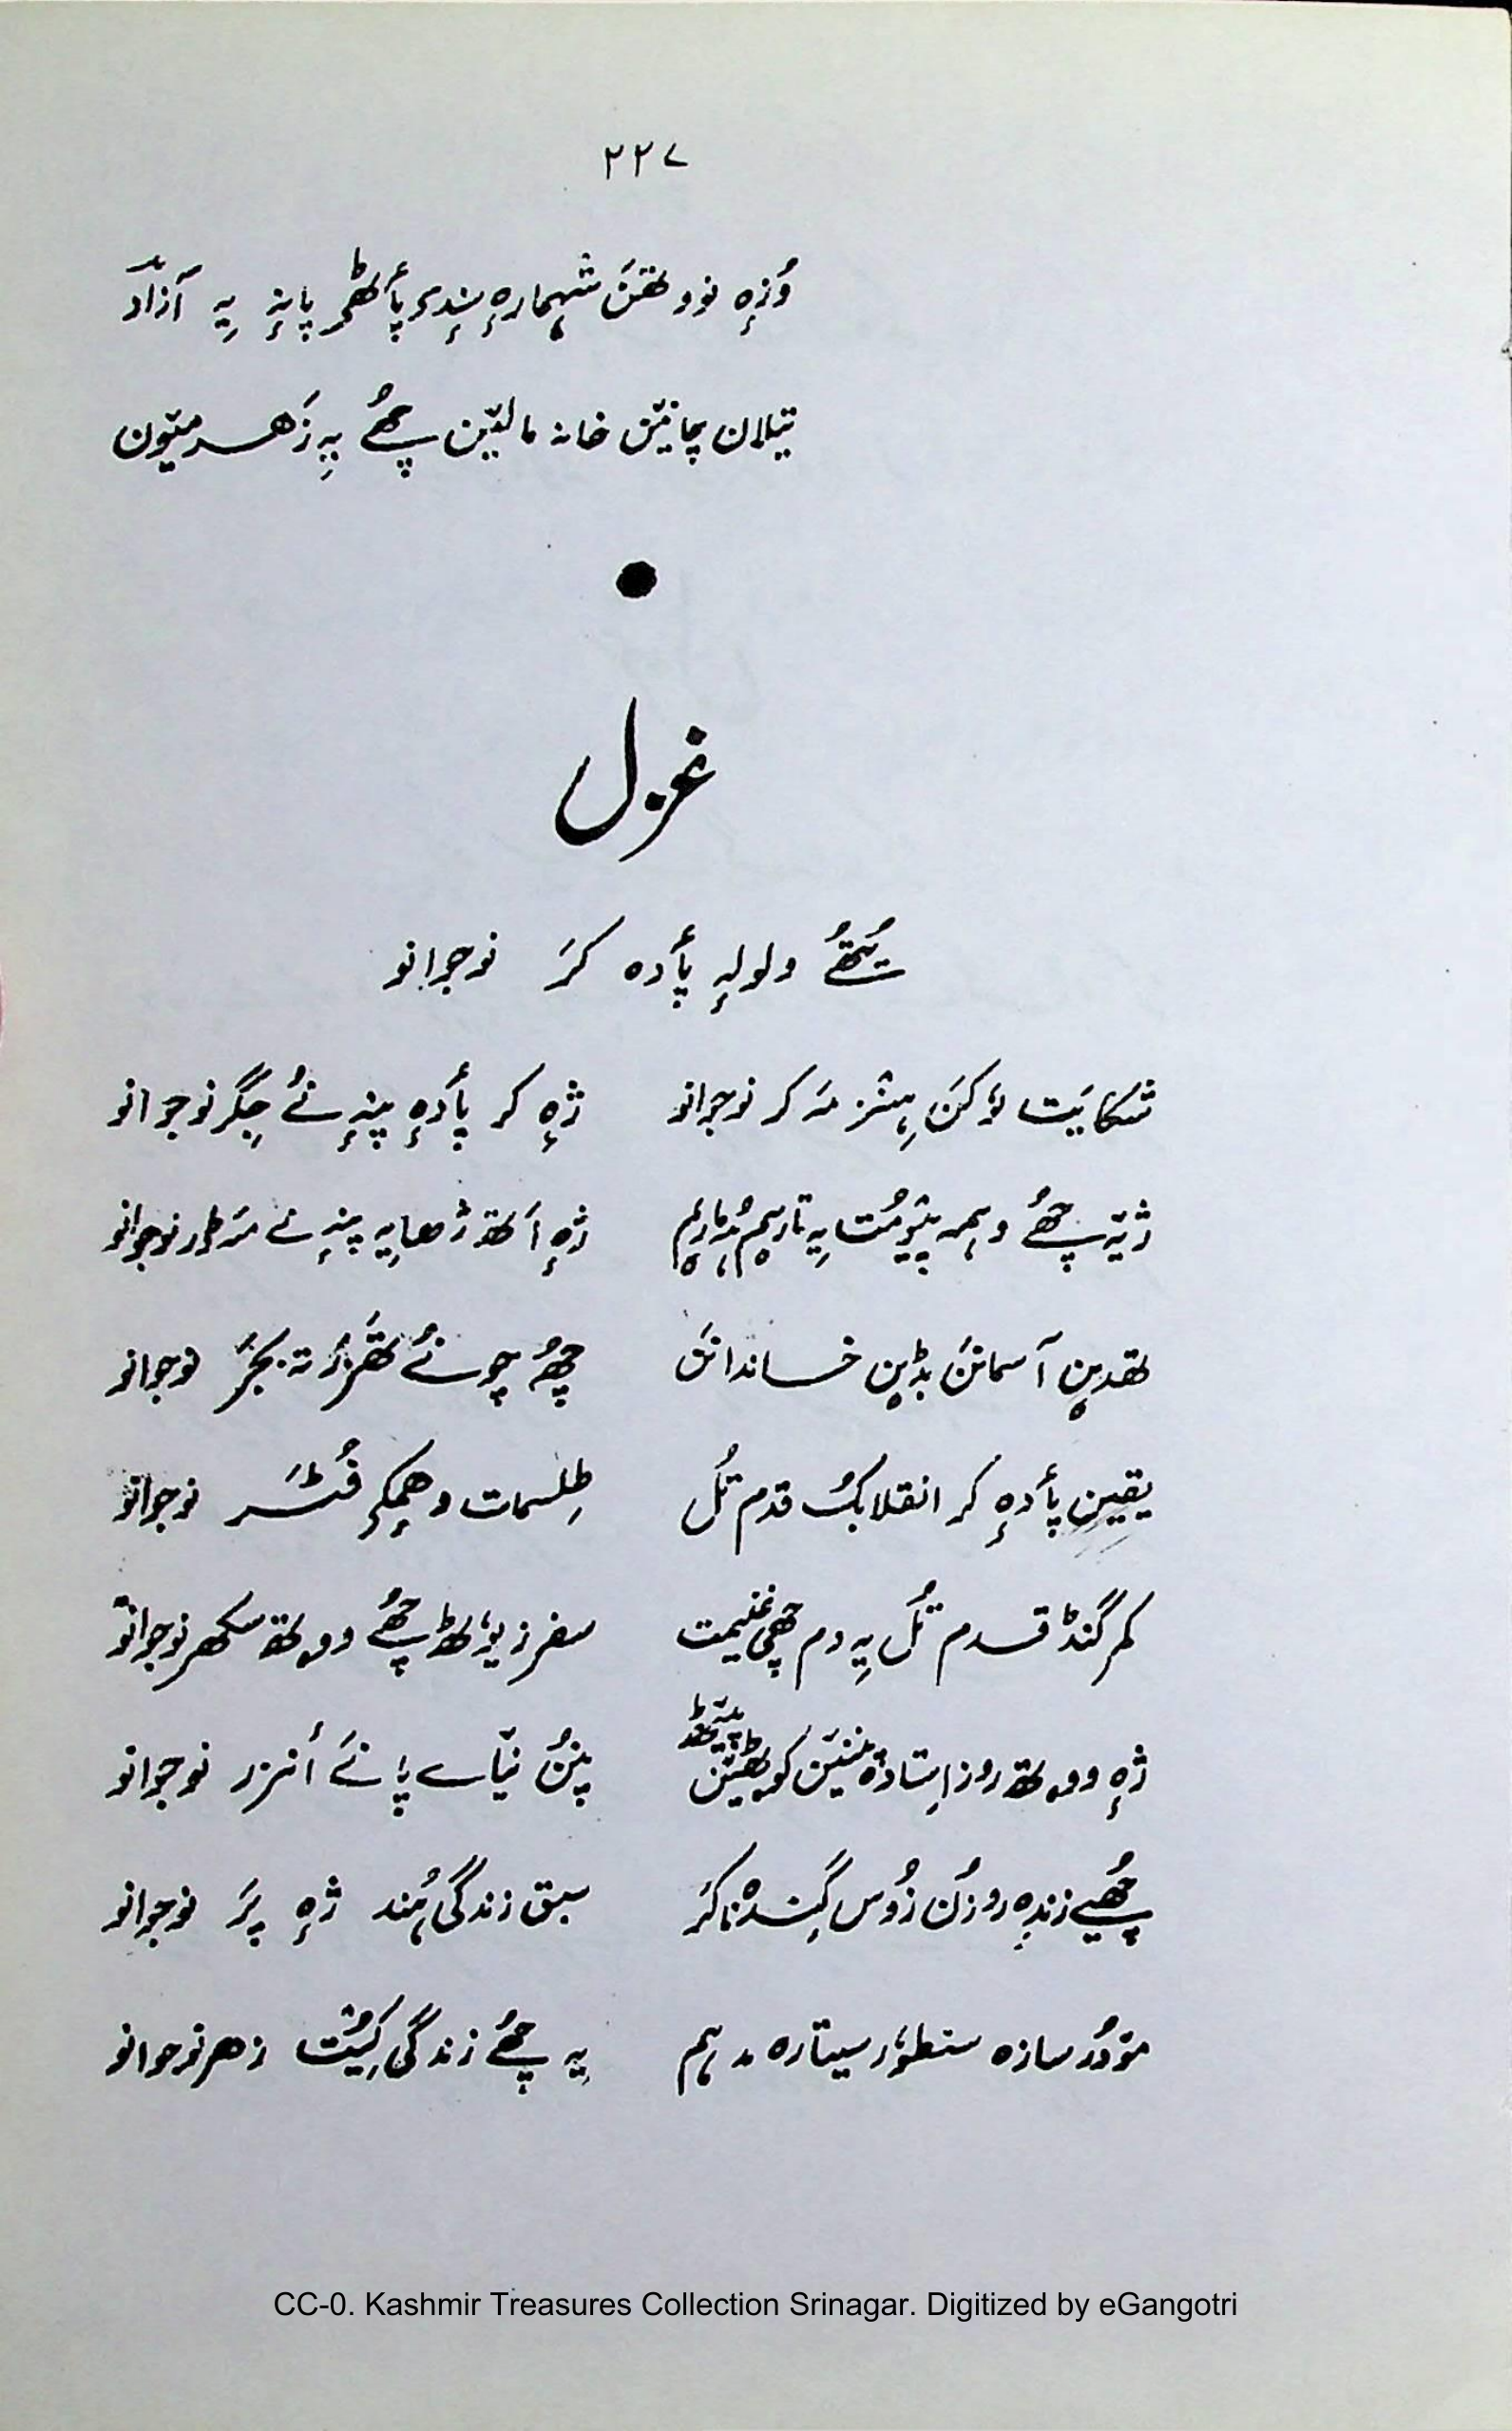 ۲۲۷
وُزِہ نوو تھَن شہمارِہ سٕندۍ پأٹھۍ پانٕہ یِہ آزاد
تیلان چانیَن خانہ مالیَن چھُے بہِ زَہر میٛون
غزل
یُتھُے ولولہٕ پأدہ کَر نوجوانو
شکایَت لۄکَن ہِنٛز مَہ کر نوجوانو ژٕہ کر پأدٕہ پنٕہ نُے جِگر نوجوانو
ژیٚہ چھُے وہمہ پیٚومُت یِہ تاریٖم ژٕہ اَتھ ژھایہِ پنٕہ نے مَہ ژر نوجوانو
تھدیٖن آسمانَن بڈیٖن خاندانَن چھُہ چونُے تھَزَر تہ بجَر نوجوانو
یقیٖن پأدٕہ کر انقلابُک قدم تُل طِلسمات وہمٕکۍ فُٹَر نوجوانو
کمر گنڈ قدم تُل یِہ دم چھی غنیمت سفر زیوٗٹھ چھُے ووتھ سکھر نوجوانو
ژٕہ ووتھ روز اِستادٕہ پننیَن کوٹھیَن پؠٹھ پنُن نیٛاے پانَے أنزر نوجوانو
چھُیے زندِہ روزُن زُوس گِندٕنا کَر سبق زندگی ہُند ژٕہ پَر نوجوانو
مۆدُر سازہ سنطوٗر سیتارہ مدہم یہِ چھُے زندگی کِیُت زہر نوجوانو
CC-0. Kashmir Treasures Collection Srinagar. Digitized by eGangotri